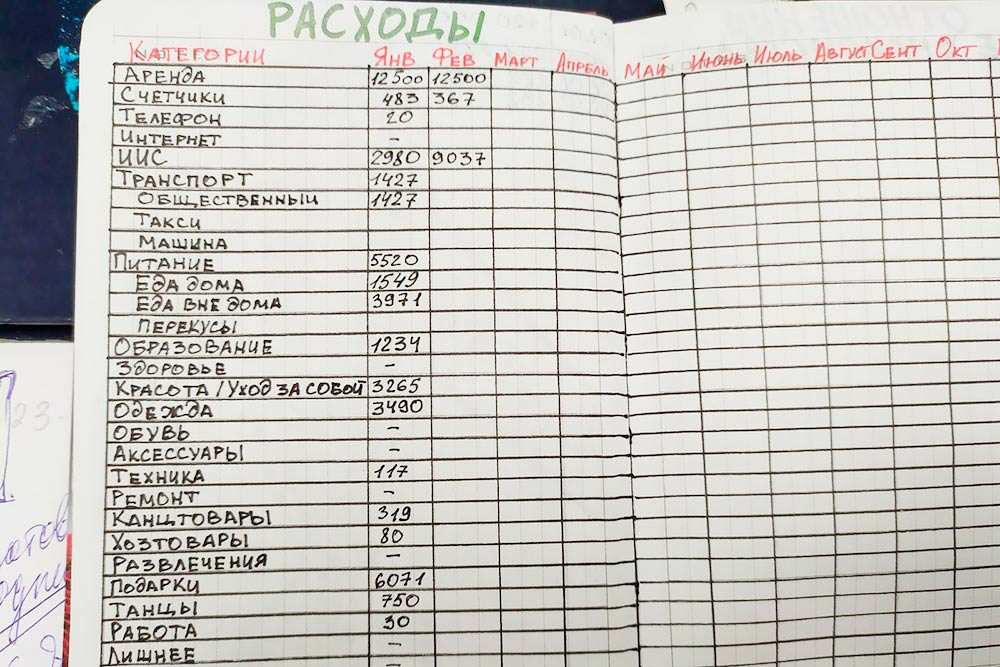 РАСХОДЫ
КАТЕГОРИИ ЯНВ ФЕВ МАРТ АПРЕЛЬ МАЙ ИЮНЬ ИЮЛЬ АВГУСТ СЕНТ ОКТ
АРЕНДА 12500 12500
СЧЕТЧИКИ 483 367
ТЕЛЕФОН 20
ИНТЕРНЕТ –
ИИС 2980 9037
ТРАНСПОРТ 1427
ОБЩЕСТВЕННЫЙ 1427
ТАКСИ
МАШИНА
ПИТАНИЕ 5520
ЕДА ДОМА 1549
ЕДА ВНЕ ДОМА 3971
ПЕРЕКУСЫ
ОБРАЗОВАНИЕ 1234
ЗДОРОВЬЕ –
КРАСОТА / УХОД ЗА СОБОЙ 3265
ОДЕЖДА 3490
ОБУВЬ –
АКСЕССУАРЫ –
ТЕХНИКА 117
РЕМОНТ –
КАНЦТОВАРЫ 319
ХОЗТОВАРЫ 80
РАЗВЛЕЧЕНИЯ –
ПОДАРКИ 6071
ТАНЦЫ 750
РАБОТА 30
ЛИШНЕЕ –